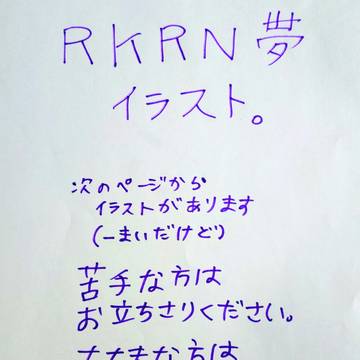 RKRN夢
イラスト。
次のページから
イラストがあります
(一まいだけど)
苦手な方は
お立ちさりください。